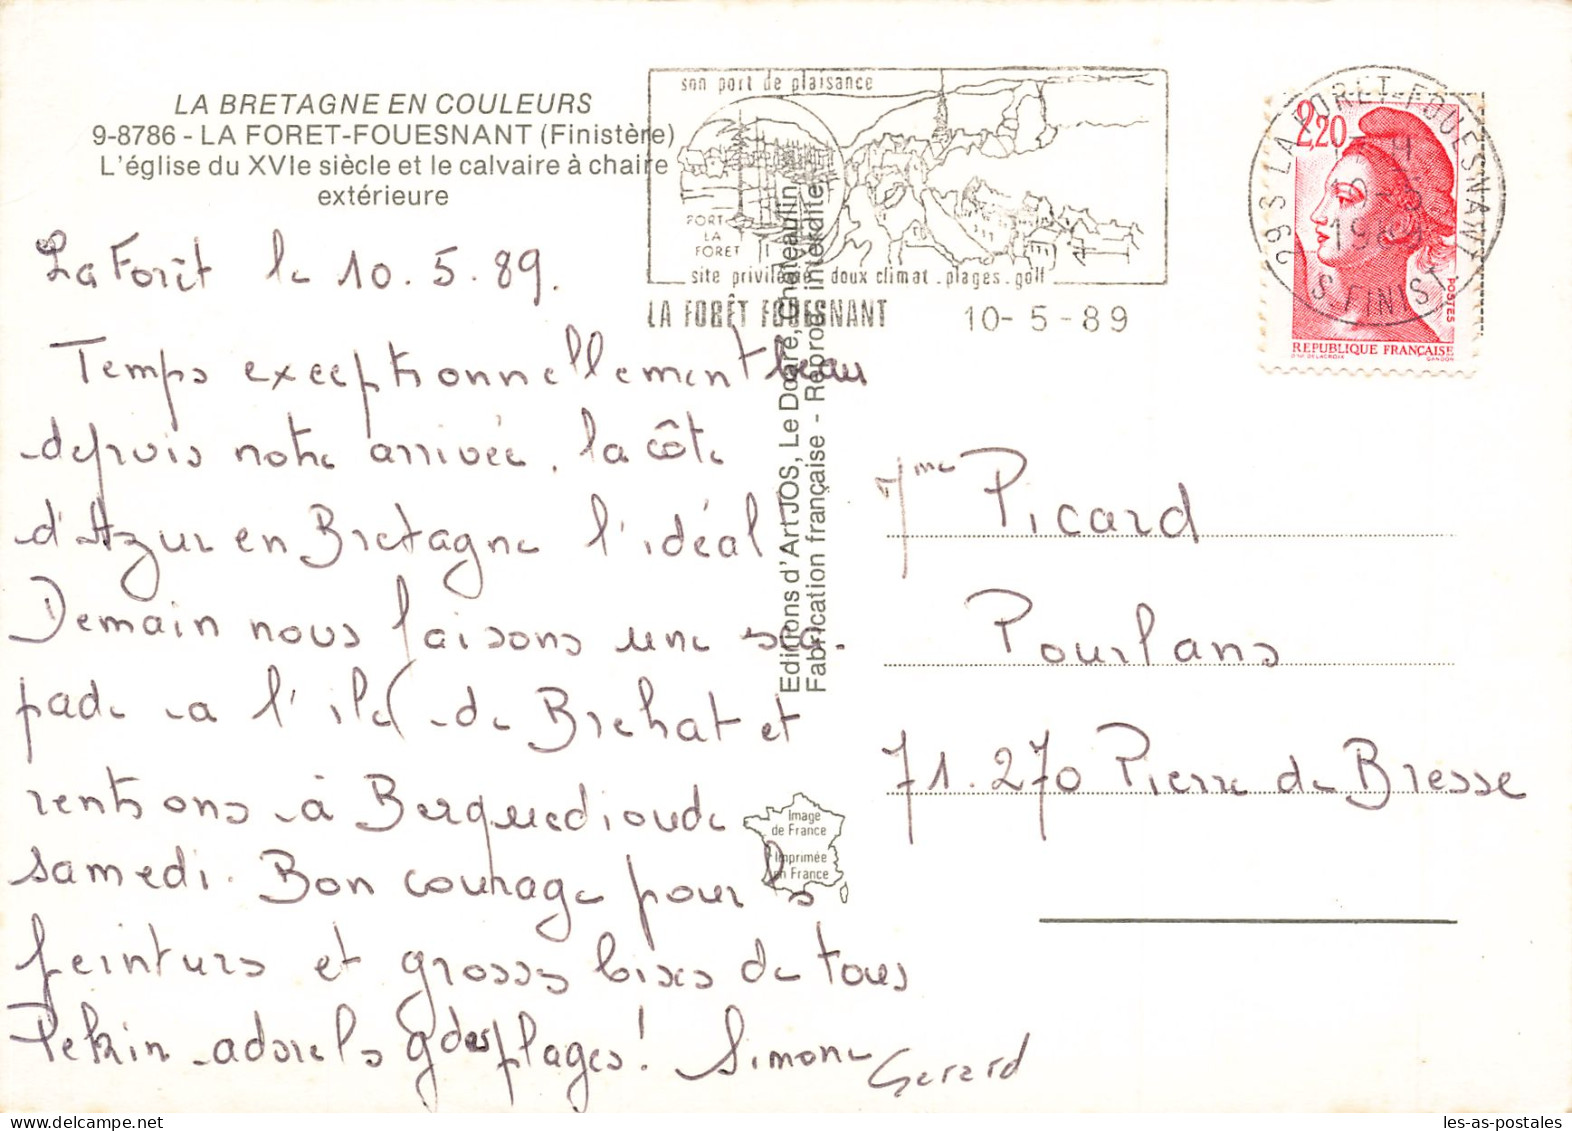 LA BRETAGNE EN COULEURS
9-8786 - LA FORET-FOUESNANT (Finistère)
L'église du XVIe siècle et le calvaire à chaire
extérieure
son port de plaisance
PORT
LA
FORET
site privilégié doux climat . plages . golf
LA FORÊT FOUESNANT 10-5-89
29S LA FORET-FOUESNANT
S. FINIST.
2,20
POSTES
REPUBLIQUE FRANÇAISE
D'AP. DELACROIX GANDON
La Forêt le 10.5.89.
Temps exceptionnellement beau
depuis notre arrivée, la côte
d'Azur en Bretagne l'idéal
Demain nous faisons une esca.
pade a l'ile de Brehat et
rentrons à Berquedioude
samedi. Bon courage pour ls
peinturs et grosss bises de tous
Pekin adore ls gdes plages! Simone
Gerard
Editions d'Art JOS, Le Doaré, Châteaulin
Fabrication française - Reprod. interdite
Image
de France
Imprimée
en France
Mme Picard
Pourlans
71.270 Pierre de Bresse
les-as-postales